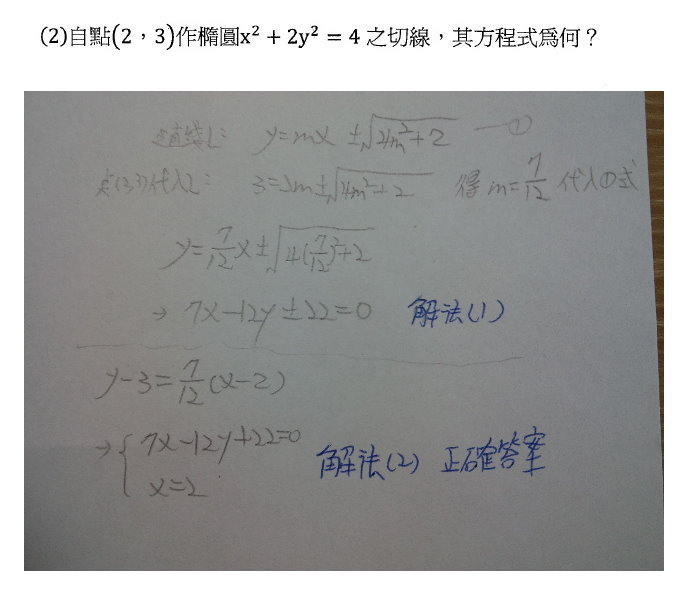 (2)自點(2，3)作橢圓x² + 2y² = 4 之切線，其方程式為何？
直線L： y=mx ±√4m²+2 —①
点(2,3)代入L： 3=2m±√4m²+2 得 m=7/12 代入①式
y=7/12x±√4(7/12)²+2
→ 7x-12y±22=0 解法(1)
y-3=7/12(x-2)
→{ 7x-12y+22=0
x=2 解法(2) 正確答案